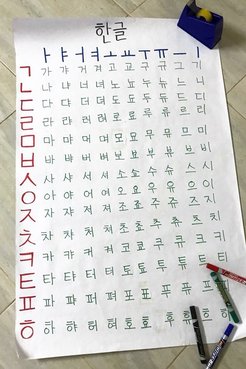 한글
ㅏ ㅑ ㅓ ㅕ ㅗ ㅛ ㅜ ㅠ ㅡ ㅣ
ㄱ 가 갸 거 겨 고 교 구 규 그 기
ㄴ 나 냐 너 녀 노 뇨 누 뉴 느 니
ㄷ 다 댜 더 뎌 도 됴 두 듀 드 디
ㄹ 라 랴 러 려 로 료 루 류 르 리
ㅁ 마 먀 머 며 모 묘 무 뮤 므 미
ㅂ 바 뱌 버 벼 보 뵤 부 뷰 브 비
ㅅ 사 샤 서 셔 소 쇼 수 슈 스 시
ㅇ 아 야 어 여 오 요 우 유 으 이
ㅈ 자 쟈 저 져 조 죠 주 쥬 즈 지
ㅊ 차 챠 처 쳐 초 쵸 추 츄 츠 치
ㅋ 카 캬 커 켜 코 쿄 쿠 큐 크 키
ㅌ 타 탸 터 텨 토 툐 투 튜 트 티
ㅍ 파 퍄 퍼 펴 포 표 푸 퓨 프 피
ㅎ 하 햐 허 혀 호 효 후 휴 흐 히